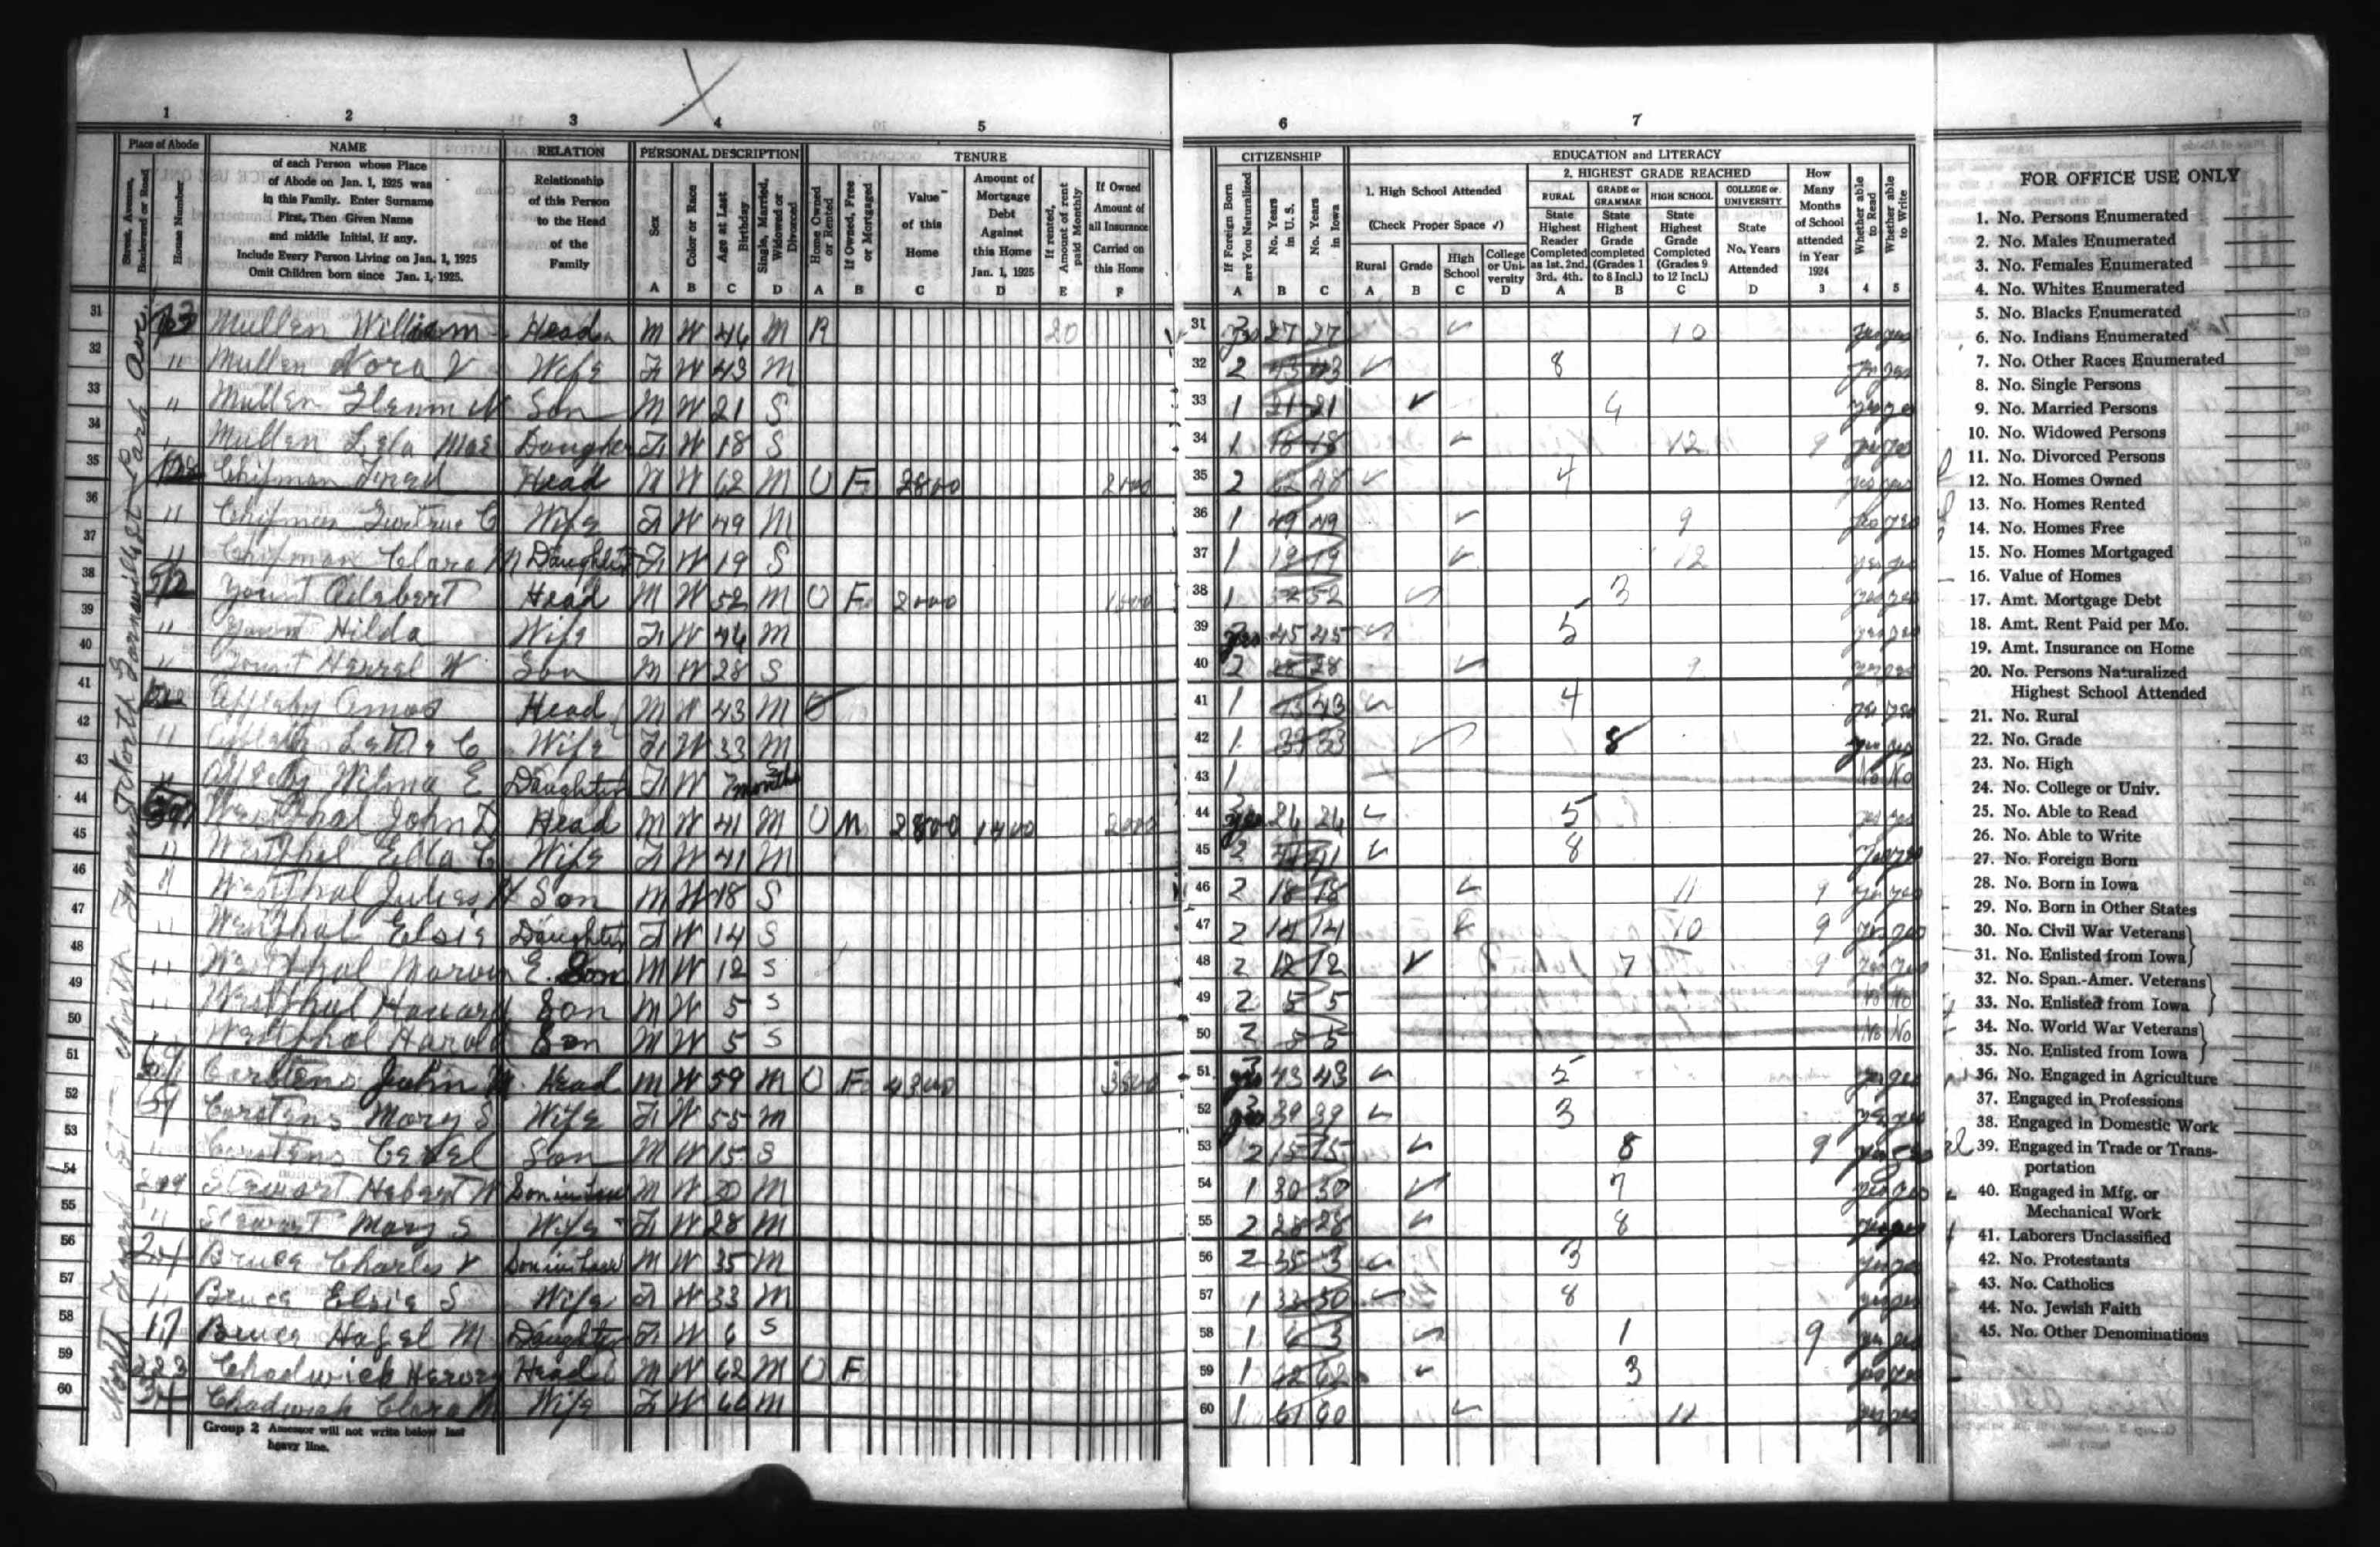 1 2 3 4 5
Place of Abode
Street, Avenue, Boulevard or Road
House Number
NAME
of each Person whose Place
of Abode on Jan. 1, 1925 was
in this Family. Enter Surname
First, Then Given Name
and middle Initial, if any.
Include Every Person Living on Jan. 1, 1925
Omit Children born since Jan. 1, 1925.
RELATION
Relationship
of this Person
to the Head
of the
Family
PERSONAL DESCRIPTION
Sex
Color or Race
Age at Last Birthday
Single, Married, Widowed or Divorced
A B C D
TENURE
Home Owned or Rented
If Owned, Free or Mortgaged
Value of this Home
Amount of Mortgage Debt Against this Home Jan. 1, 1925
If rented, Amount of rent paid Monthly
If Owned Amount of all Insurance Carried on this Home
A B C D E F
31 Mullen William Head M W 46 M R 20
32 " Mullen Nora V Wife F W 43 M
33 " Mullen N Son M W 21 S
34 " Mullen Mae Daughter F W 18 S
35 Chipman Fred Head M W 62 M O F 2800
36 " Chipman C Wife F W 49 M
37 " Chipman Clara M Daughter F W 19 S
38 Yount Head M W 52 M O F 2000
39 " Yount Hilda Wife F W 46 M
40 " Yount W Son M W 28 S
41 Amos Head M W 43 M
42 " C Wife F W 33 M
43 " Wilma E Daughter F W 7 months
44 Westphal John Head M W 41 M O M 2800 1400 2000
45 " Westphal Ella Wife F W 41 M
46 " Westphal Son M W 18 S
47 " Westphal Elsie Daughter F W 14 S
48 " Westphal Marvin E. Son M W 12 S
49 " Westphal Howard Son M W 5 S
50 Westphal Harold Son M W 5 S
51 Carstens John Head M W 59 M O F 4300 3500
52 Carstens Mary S Wife F W 55 M
53 Carstens Son M W 15 S
54 Stewart W Son in Law M W 30 M
55 " Stewart Mary S Wife F W 28 M
56 Bruce Charles V Son in Law M W 35 M
57 " Bruce Elsie S Wife F W 33 M
58 Bruce Hazel M Daughter F W 6 S
59 Chadwick Head M W 62 M O F
60 Chadwick Clara M Wife F W 60 M
Group 2 Assessor will not write below last
heavy line.
6 7
CITIZENSHIP
If Foreign Born are You Naturalized
No. Years in U.S.
No. Years in Iowa
A B C
EDUCATION and LITERACY
1. High School Attended
(Check Proper Space ✓)
Rural Grade High School College or University
A B C D
2. HIGHEST GRADE REACHED
RURAL
State Highest Reader Completed as 1st. 2nd. 3rd. 4th.
GRADE or GRAMMAR
State Highest Grade completed (Grades 1 to 8 Incl.)
HIGH SCHOOL
State Highest Grade Completed (Grades 9 to 12 Incl.)
COLLEGE or UNIVERSITY
State No. Years Attended
A B C D
How Many Months of School attended in Year 1924
3
Whether able to Read
4
Whether able to Write
5
31 yes 27 27 ✓ 10 yes yes
32 2 43 43 ✓ 8 yes yes
33 1 21 21 ✓ yes yes
34 1 18 18 ✓ 12 9 yes yes
35 2 62 48 ✓ 4 yes yes
36 1 49 49 ✓ 9 yes yes
37 1 19 19 ✓ 12 yes yes
38 1 52 52 ✓ 3 yes yes
39 yes 45 45 ✓ 5 yes yes
40 2 28 28 ✓ 9 yes yes
41 1 43 43 ✓ 4 yes yes
42 1 33 33 ✓ 8 yes yes
43 1 No No
44 yes 26 26 ✓ 5 yes yes
45 2 41 41 ✓ 8 yes yes
46 2 18 18 ✓ 11 9 yes yes
47 2 14 14 ✓ 10 9 yes yes
48 2 12 12 ✓ 7 9 yes yes
49 2 5 5 No No
50 2 5 5 No No
51 yes 43 43 ✓ 5 yes yes
52 yes 39 39 ✓ 3 yes yes
53 2 15 15 ✓ 8 9 yes yes
54 1 30 30 ✓ 7 yes yes
55 2 28 28 ✓ 8 yes yes
56 2 35 3 ✓ 3 yes yes
57 1 33 30 ✓ 8 yes yes
58 1 6 3 ✓ 1 9 yes yes
59 1 62 62 ✓ 3 yes yes
60 1 60 ✓ 11 yes yes
FOR OFFICE USE ONLY
1. No. Persons Enumerated
2. No. Males Enumerated
3. No. Females Enumerated
4. No. Whites Enumerated
5. No. Blacks Enumerated
6. No. Indians Enumerated
7. No. Other Races Enumerated
8. No. Single Persons
9. No. Married Persons
10. No. Widowed Persons
11. No. Divorced Persons
12. No. Homes Owned
13. No. Homes Rented
14. No. Homes Free
15. No. Homes Mortgaged
16. Value of Homes
17. Amt. Mortgage Debt
18. Amt. Rent Paid per Mo.
19. Amt. Insurance on Home
20. No. Persons Naturalized
Highest School Attended
21. No. Rural
22. No. Grade
23. No. High
24. No. College or Univ.
25. No. Able to Read
26. No. Able to Write
27. No. Foreign Born
28. No. Born in Iowa
29. No. Born in Other States
30. No. Civil War Veterans
31. No. Enlisted from Iowa
32. No. Span.-Amer. Veterans
33. No. Enlisted from Iowa
34. No. World War Veterans
35. No. Enlisted from Iowa
36. No. Engaged in Agriculture
37. Engaged in Professions
38. Engaged in Domestic Work
39. Engaged in Trade or Trans-
portation
40. Engaged in Mfg. or
Mechanical Work
41. Laborers Unclassified
42. No. Protestants
43. No. Catholics
44. No. Jewish Faith
45. No. Other Denominations